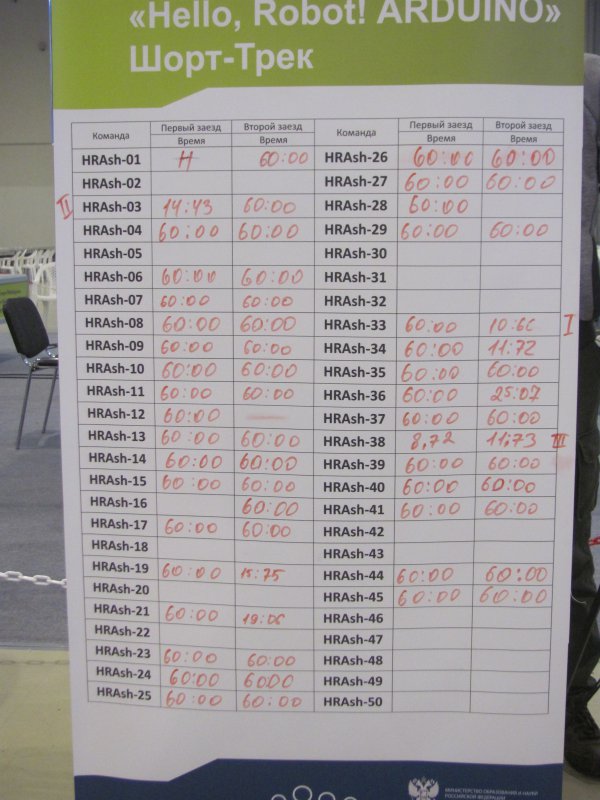 «Hello, Robot! ARDUINO»
Шорт-Трек
Команда Первый заезд Второй заезд Команда Первый заезд Второй заезд
Время Время Время Время
HRAsh-01 H 60:00 HRAsh-26 60:00 60:00
HRAsh-02 HRAsh-27 60:00 60:00
II HRAsh-03 14:43 60:00 HRAsh-28 60:00
HRAsh-04 60:00 60:00 HRAsh-29 60:00 60:00
HRAsh-05 HRAsh-30
HRAsh-06 60:00 60:00 HRAsh-31
HRAsh-07 60:00 60:00 HRAsh-32
HRAsh-08 60:00 60:00 HRAsh-33 60:00 I
HRAsh-09 60:00 60:00 HRAsh-34 60:00 11:72
HRAsh-10 60:00 60:00 HRAsh-35 60:00 60:00
HRAsh-11 60:00 60:00 HRAsh-36 60:00 25:07
HRAsh-12 60:00 HRAsh-37 60:00 60:00
HRAsh-13 60:00 60:00 HRAsh-38 8,72 11,73 III
HRAsh-14 60:00 60:00 HRAsh-39 60:00 60:00
HRAsh-15 60:00 60:00 HRAsh-40 60:00 60:00
HRAsh-16 60:00 HRAsh-41 60:00 60:00
HRAsh-17 60:00 60:00 HRAsh-42
HRAsh-18 HRAsh-43
HRAsh-19 60:00 15:75 HRAsh-44 60:00 60:00
HRAsh-20 HRAsh-45 60:00 60:00
HRAsh-21 60:00 19:06 HRAsh-46
HRAsh-22 HRAsh-47
HRAsh-23 60:00 60:00 HRAsh-48
HRAsh-24 60:00 6000 HRAsh-49
HRAsh-25 60:00 60:00 HRAsh-50
МИНИСТЕРСТВО ОБРАЗОВАНИЯ И НАУКИ
РОССИЙСКОЙ ФЕДЕРАЦИИ